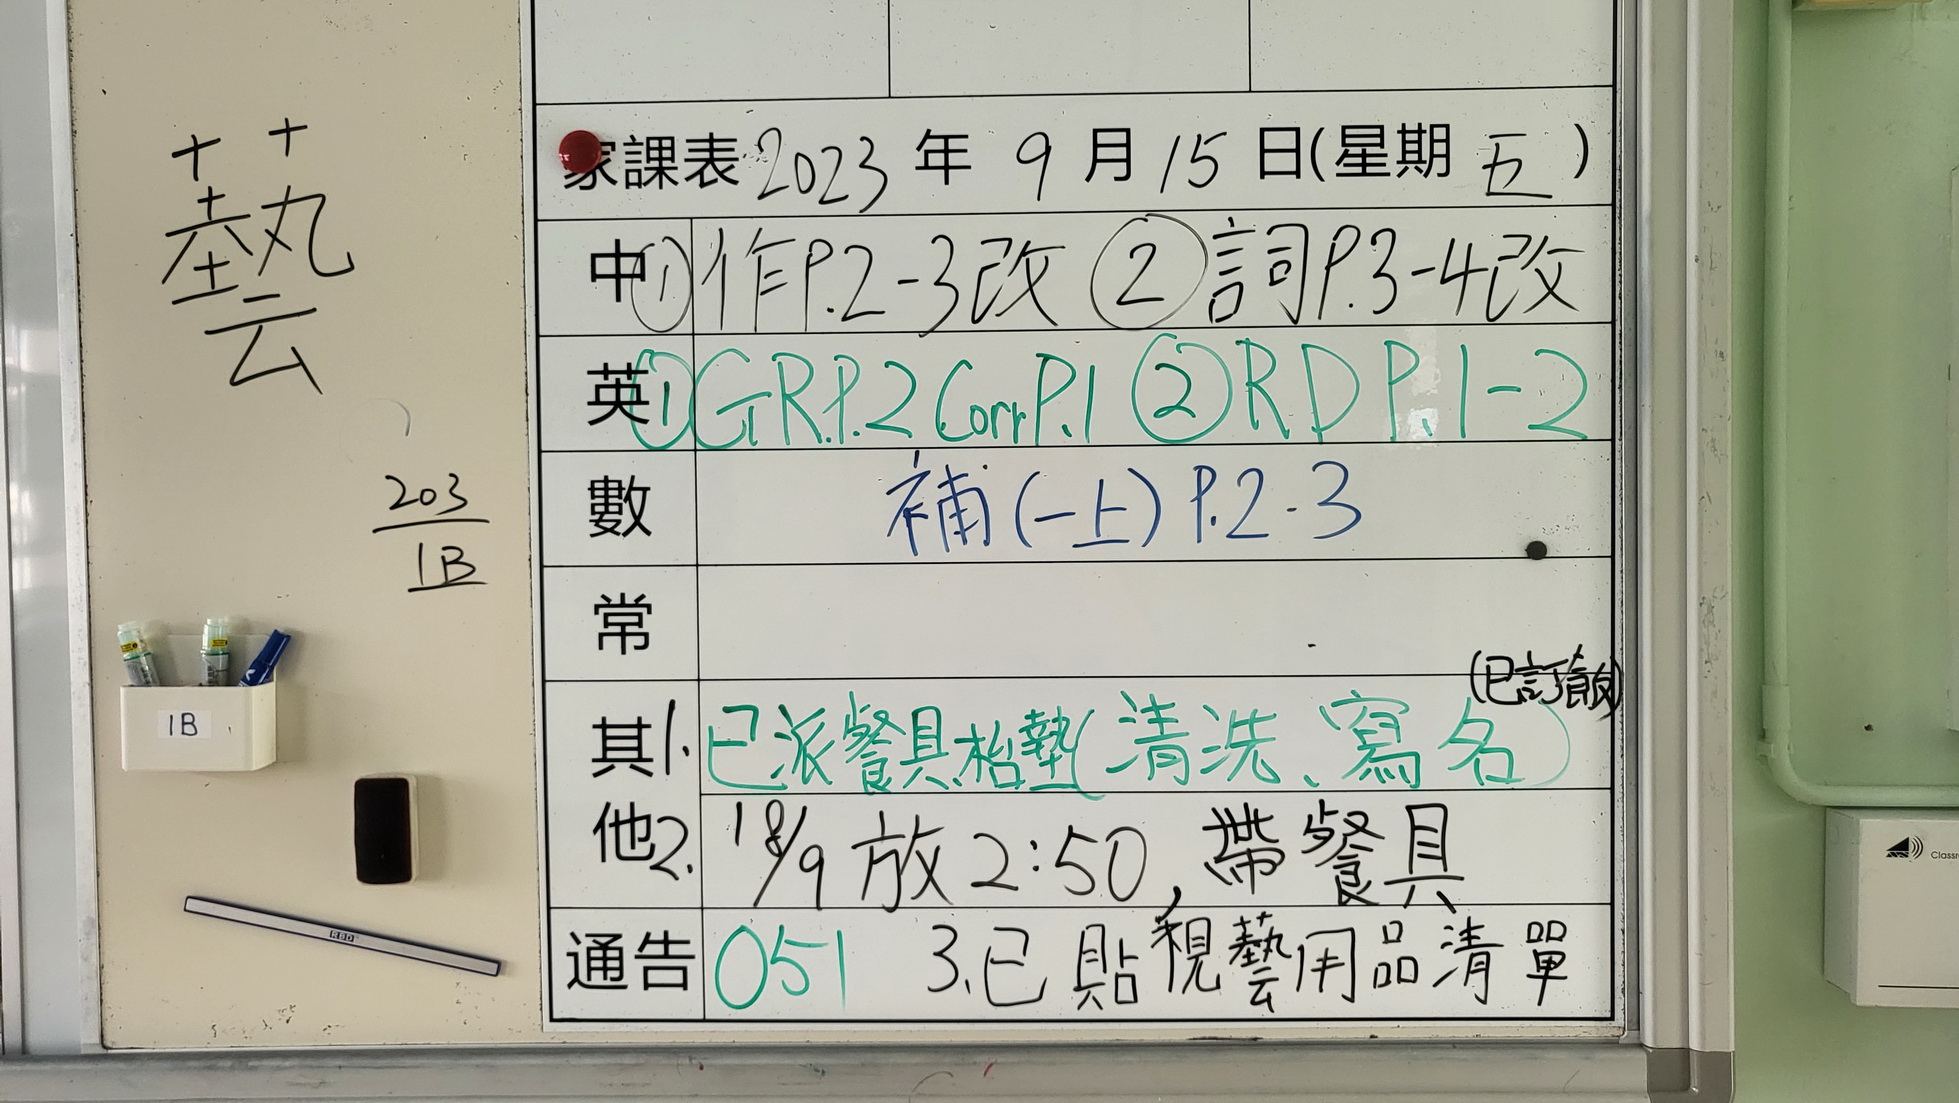 藝
203
1B
1B
RBD
家課表 2023 年 9 月 15 日(星期 五)
中 ①作P.2-3改 ②詞P.3-4改
英 ①GR.P.2 Corr P.1 ②RD P.1-2
數 補(一上) P.2-3
常
(已訂飯)
其他 1. 已派餐具、枱墊(清洗、寫名)
2. 18/9 放2:50, 帶餐具
通告 051 3.已貼視藝用品清單